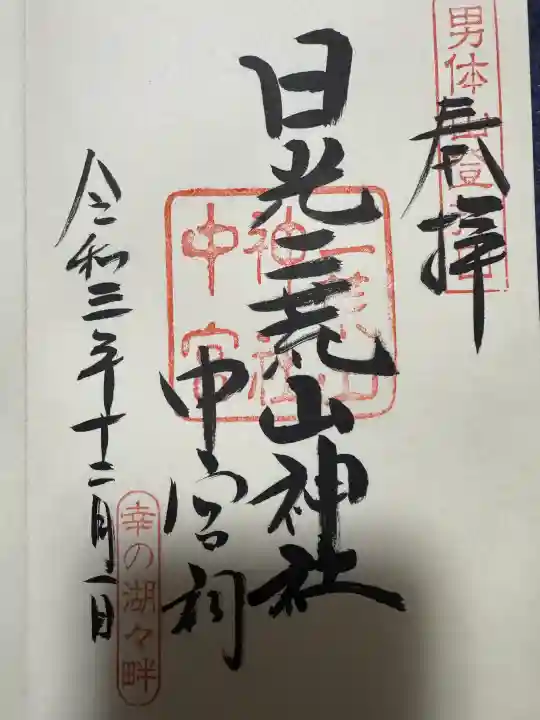 奉拝
男体山登拝口
日光二荒山神社
中宮祠
二荒山
神社
中宮
令和三年十二月一日
幸の湖々畔